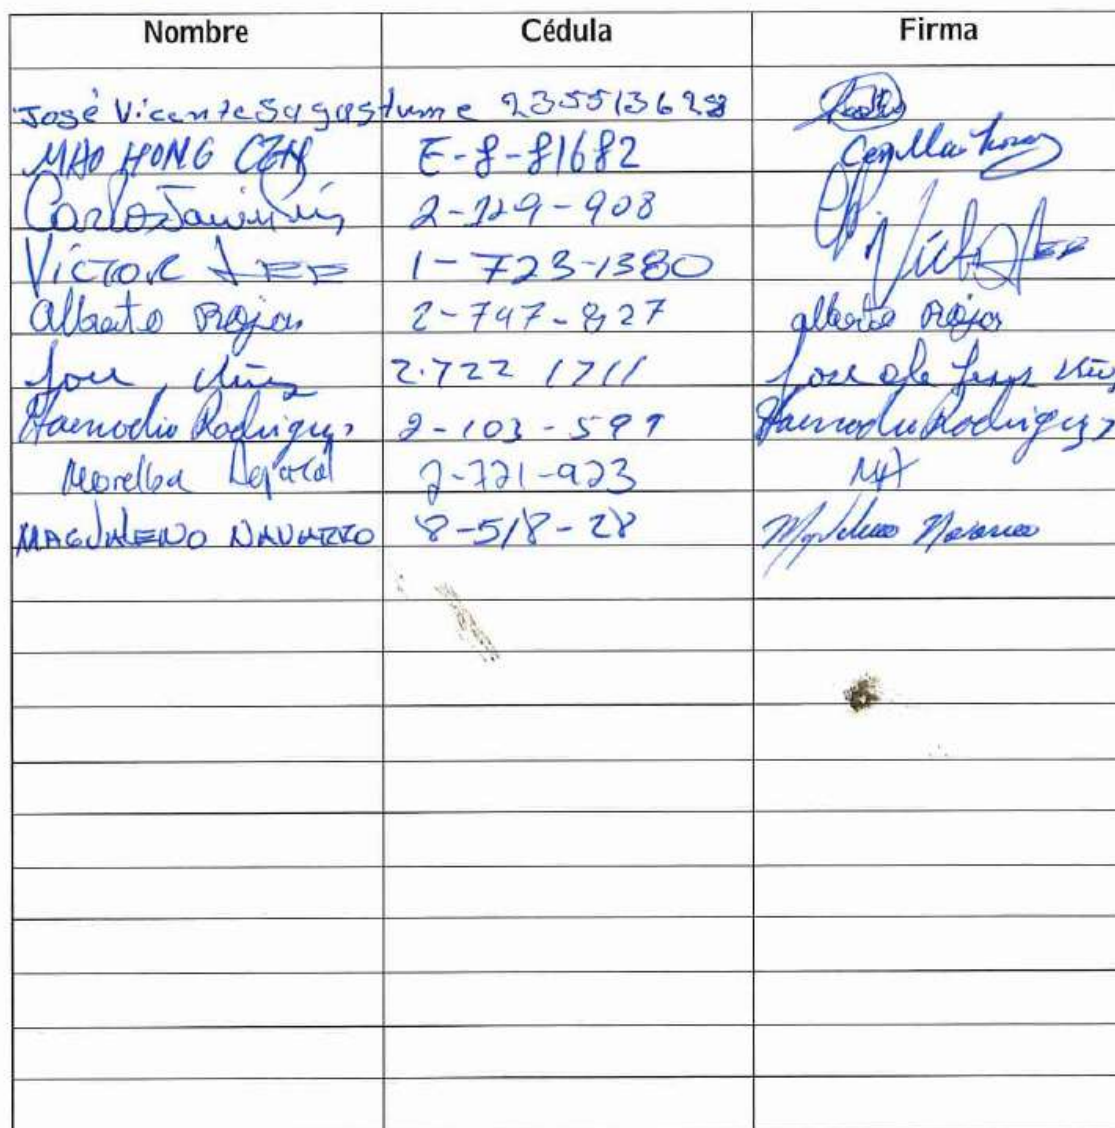 Nombre Cédula Firma
José Vicente Sagastume 2355136258
MAO HONG CEN E-8-81682
Carlos Javier 2-129-908
VICTOR LEE 1-723-1380 Victor LEE
alberto Rojas 2-747-827 alberto Rojas
Jose 2-722 1711 Jose de
Haemodio Rodriguez 2-103-599 Haemodio Rodriguez
Morelba 2-721-923
MAGDALENO NAVARRO 8-518-28 Magdaleno Navarro